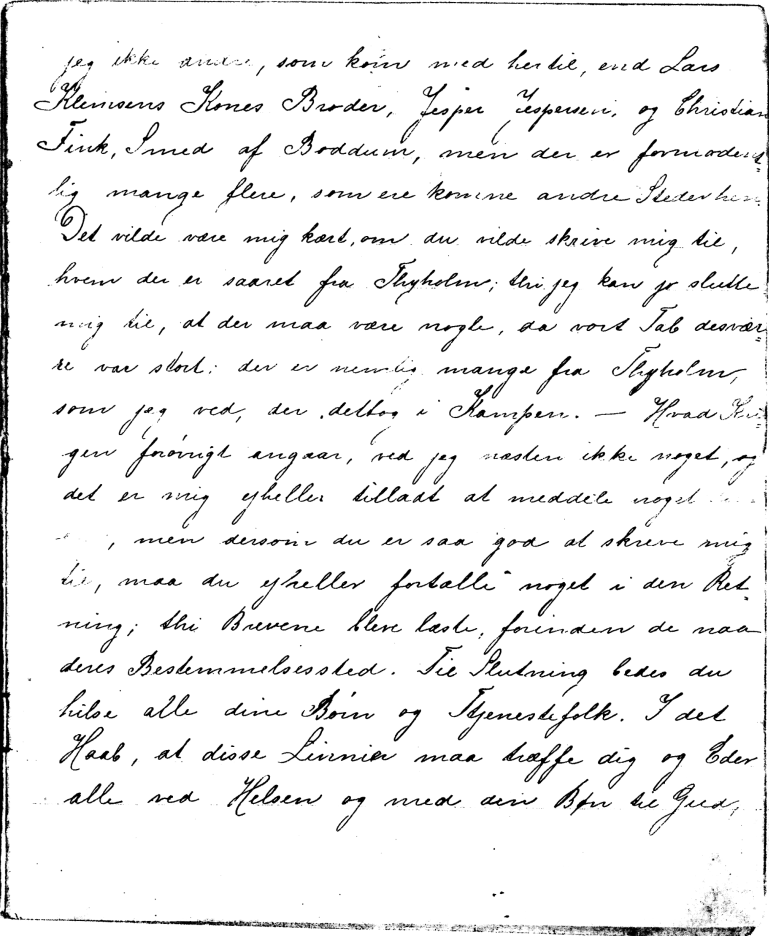 jeg ikke andre, som kom med hertil, end Lars
Klemsens Kones Broder, Jesper Jespersen, og Christian
Fink, Smed af Boddum, men der er formodent-
lig mange flere, som ere komne andre Steder hen.
Det vilde være mig kært, om du vilde skrive mig til,
hvem der er saaret fra Thyholm; thi jeg kan jo slutte
mig til, at der maa være nogle, da vort Tab desvær-
re var stort; der er nemlig mange fra Thyholm,
som jeg ved, der deltog i Kampen. — Hvad Kri-
gen forøvrigt angaar, ved jeg næsten ikke noget, og
det er mig ejheller tilladt at meddele noget
, men dersom du er saa god at skreve mig
til, maa du ejheller fortælle noget i den Ret-
ning; thi Brevene bleve læste, forinden de naa
deres Bestemmelsessted. Til Slutning bedes du
hilse alle dine Børn og Tjenestefolk. I det
Haab, at disse Linnier maa træffe dig og Eder
alle ved Helsen og med den Bøn til Gud,